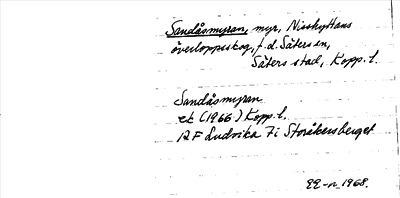 Sandåsmyran, myr, Nisshyttans
överloppsskog, f.d. Säters sn,
Säters stad, Kopp. l.
Sandåsmyran
ek (1966) Kopp. l.
RF Ludvika 7i Storåkersberget
1968.